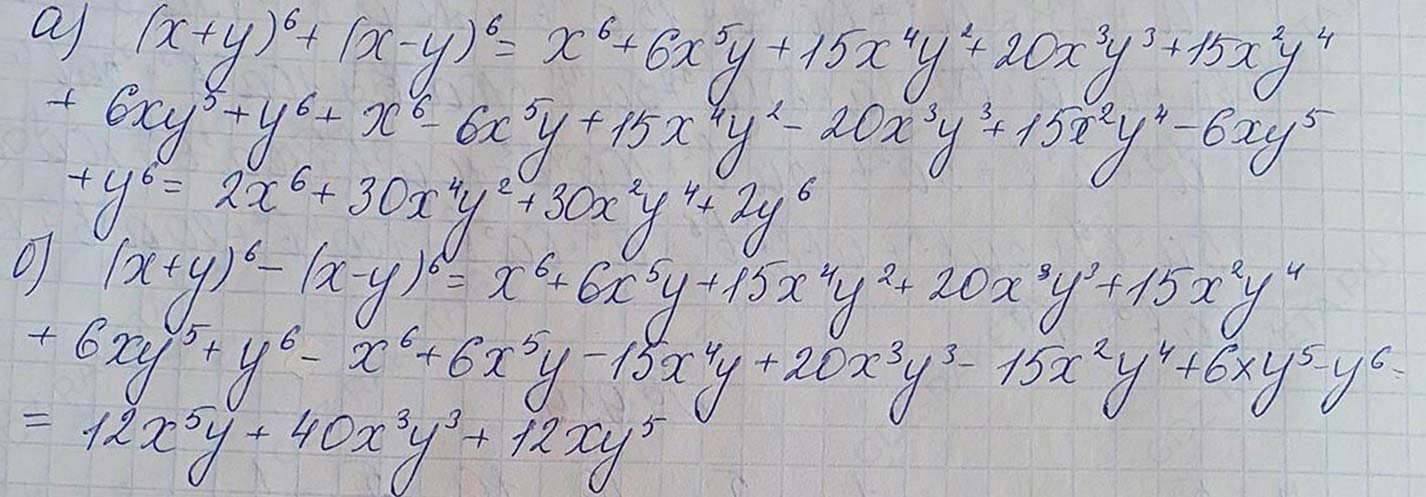 а) (x+y)⁶+(x-y)⁶= x⁶+6x⁵y+15x⁴y²+20x³y³+15x²y⁴
+ 6xy⁵+y⁶+ x⁶-6x⁵y+15x⁴y²-20x³y³+15x²y⁴-6xy⁵
+y⁶= 2x⁶+30x⁴y²+30x²y⁴+2y⁶
б) (x+y)⁶-(x-y)⁶= x⁶+6x⁵y+15x⁴y²+20x³y³+15x²y⁴
+ 6xy⁵+y⁶- x⁶+6x⁵y-15x⁴y+20x³y³-15x²y⁴+6xy⁵-y⁶=
= 12x⁵y+40x³y³+12xy⁵